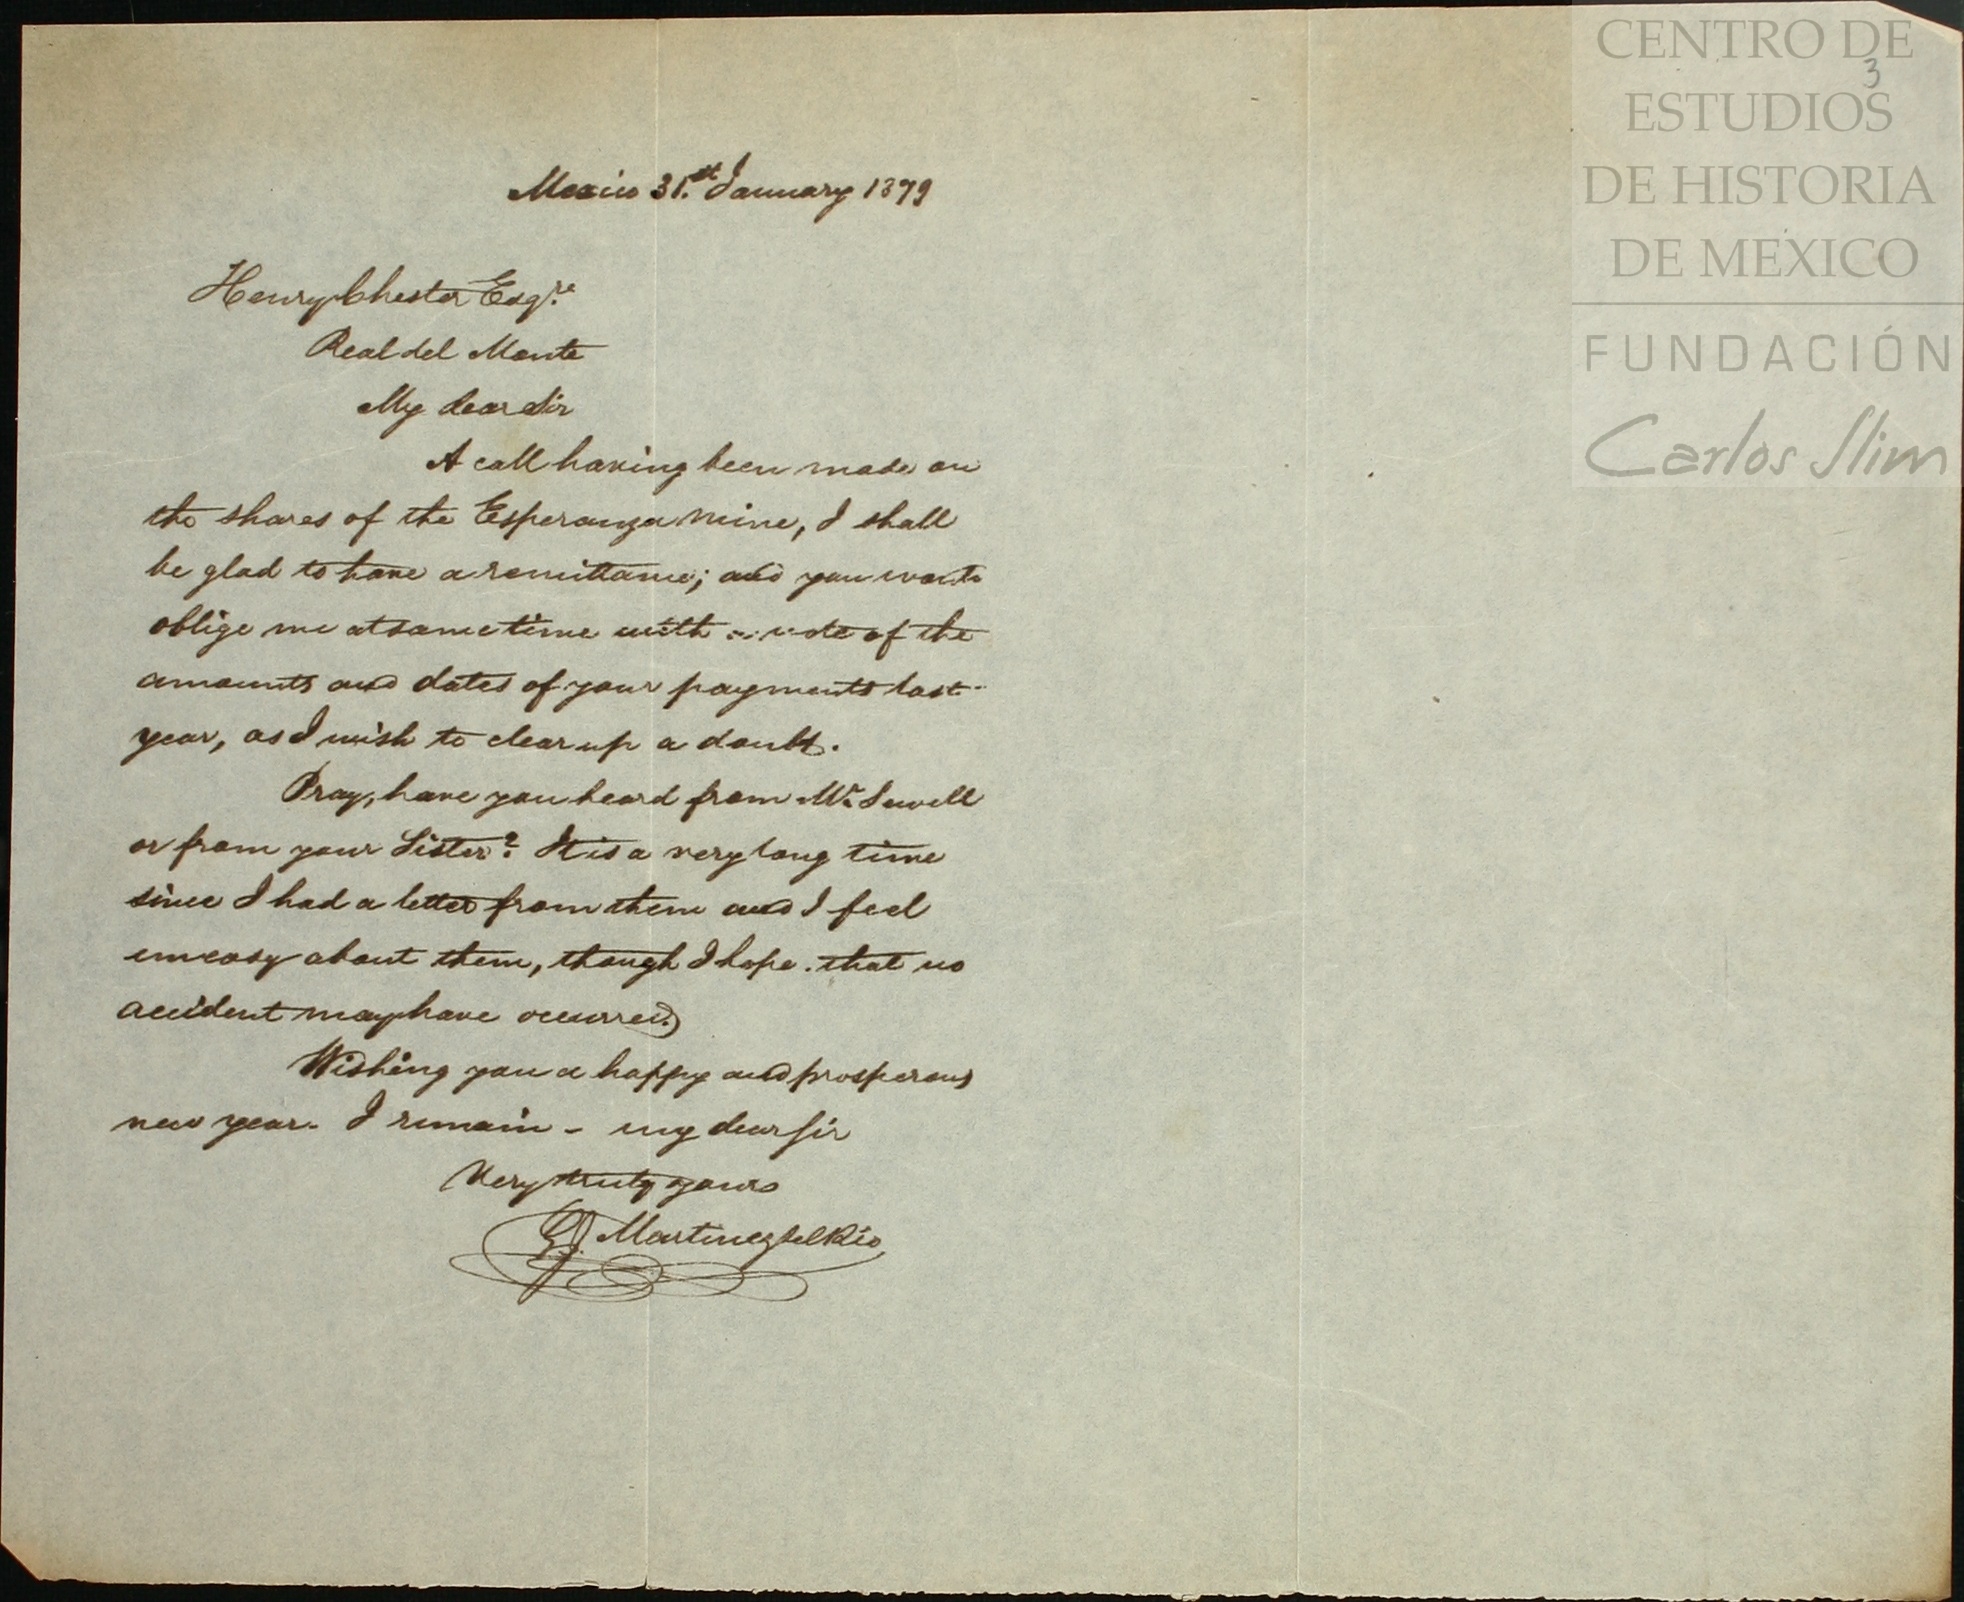 CENTRO DE
3
ESTUDIOS
DE HISTORIA
DE MEXICO
FUNDACIÓN
Carlos Slim
Mexico 31.st January 1879
Henry Chester Esqre.
Real del Monte
My dear Sir
A call having been made on
the shares of the Esperanza mine, I shall
be glad to have a remittance; and you would
oblige me at same time with a note of the
amounts and dates of your payments last
year, as I wish to clear up a doubt.
Pray, have you heard from Mr
or from your Sister? It is a very long time
since I had a letter from them and I feel
uneasy about them, though I hope that no
accident may have occurred.
Wishing you a happy and prosperous
new year. I remain - my dear sir
Very truly yours
Martinez del Rio